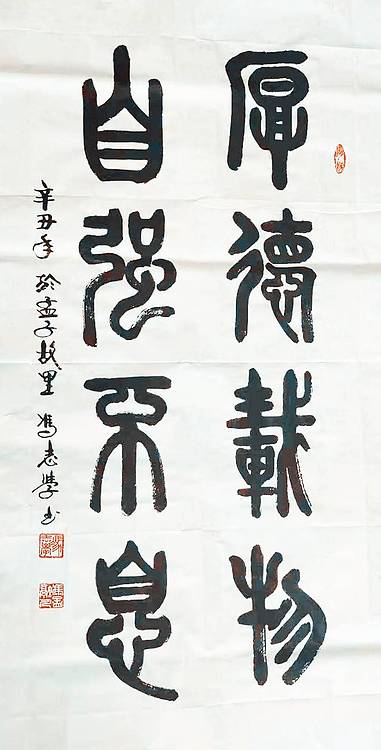 厚德載物
自强不息
辛丑年於孟子故里馮志學书